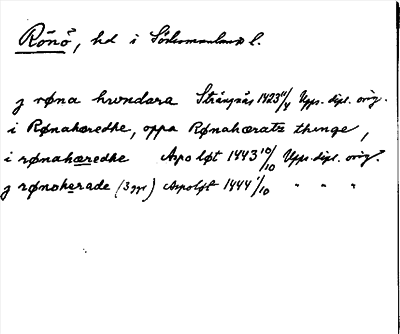 Rönö, hd i Södermanlands l.
j røna hwndara Strängnäs 1423 11/4 Upps. dipl. orig.
i Rønahæredhe, oppa Rønahæratz thinge,
i rønahæredhe Aspo løt 1443 10/10 Upps. dipl. orig.
j rønoherade (3 ggr) Aspoløt 1444 1/10 " " "